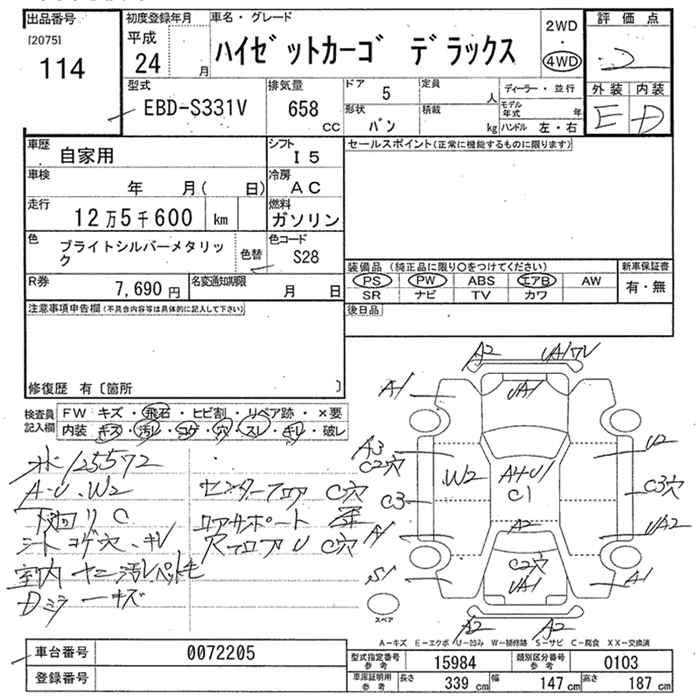 出品番号
[2075]
114
初度登録年月
平成
24 月
車名・グレード
ハイゼットカーゴ デラックス
2WD
4WD
評価点
外装 内装
E D
型式
EBD-S331V
排気量
658
cc
ドア 5
形状
バン
定員 人
積載 kg
ディーラー・並行
モデル年式 年
ハンドル 左・右
車歴
自家用
シフト
I5
車検
年 月( 日)
冷房
AC
走行
12万5千600 km
燃料
ガソリン
色
ブライトシルバーメタリック
色替
色コード
S28
R券
7,690 円
名変通知期限
月 日
セールスポイント(正常に機能するものに限ります)
装備品 (純正品に限り○をつけてください)
新車保証書
PS PW ABS エアB AW
SR ナビ TV カワ
有・無
後日品
注意事項申告欄(不具合内容等は具体的に記入して下さい)
修復歴 有〔箇所 〕
検査員
記入欄
FW キズ・飛石・ヒビ割・リペア跡・×要
内装 キズ・汚レ・コゲ・穴・スレ・キレ・破レ
125572
A-U、W2
センターフロア C穴
下回リ C
シートコゲ穴、キレ
室内
A2
A1
A3
C2穴
C3
A1
S1
W2
C1
A2
C2穴
UA1
UA1
U2
C3穴
UA2
A1
A2
A2
スペア
A-キズ E-エクボ U-凹み W-補修跡 S-サビ C-腐食 XX-交換済
車台番号 0072205
登録番号
型式指定番号
参考
15984
類別区分番号
参考
0103
車庫証明用
参考
長さ 339 cm 幅 147 cm 高さ 187 cm